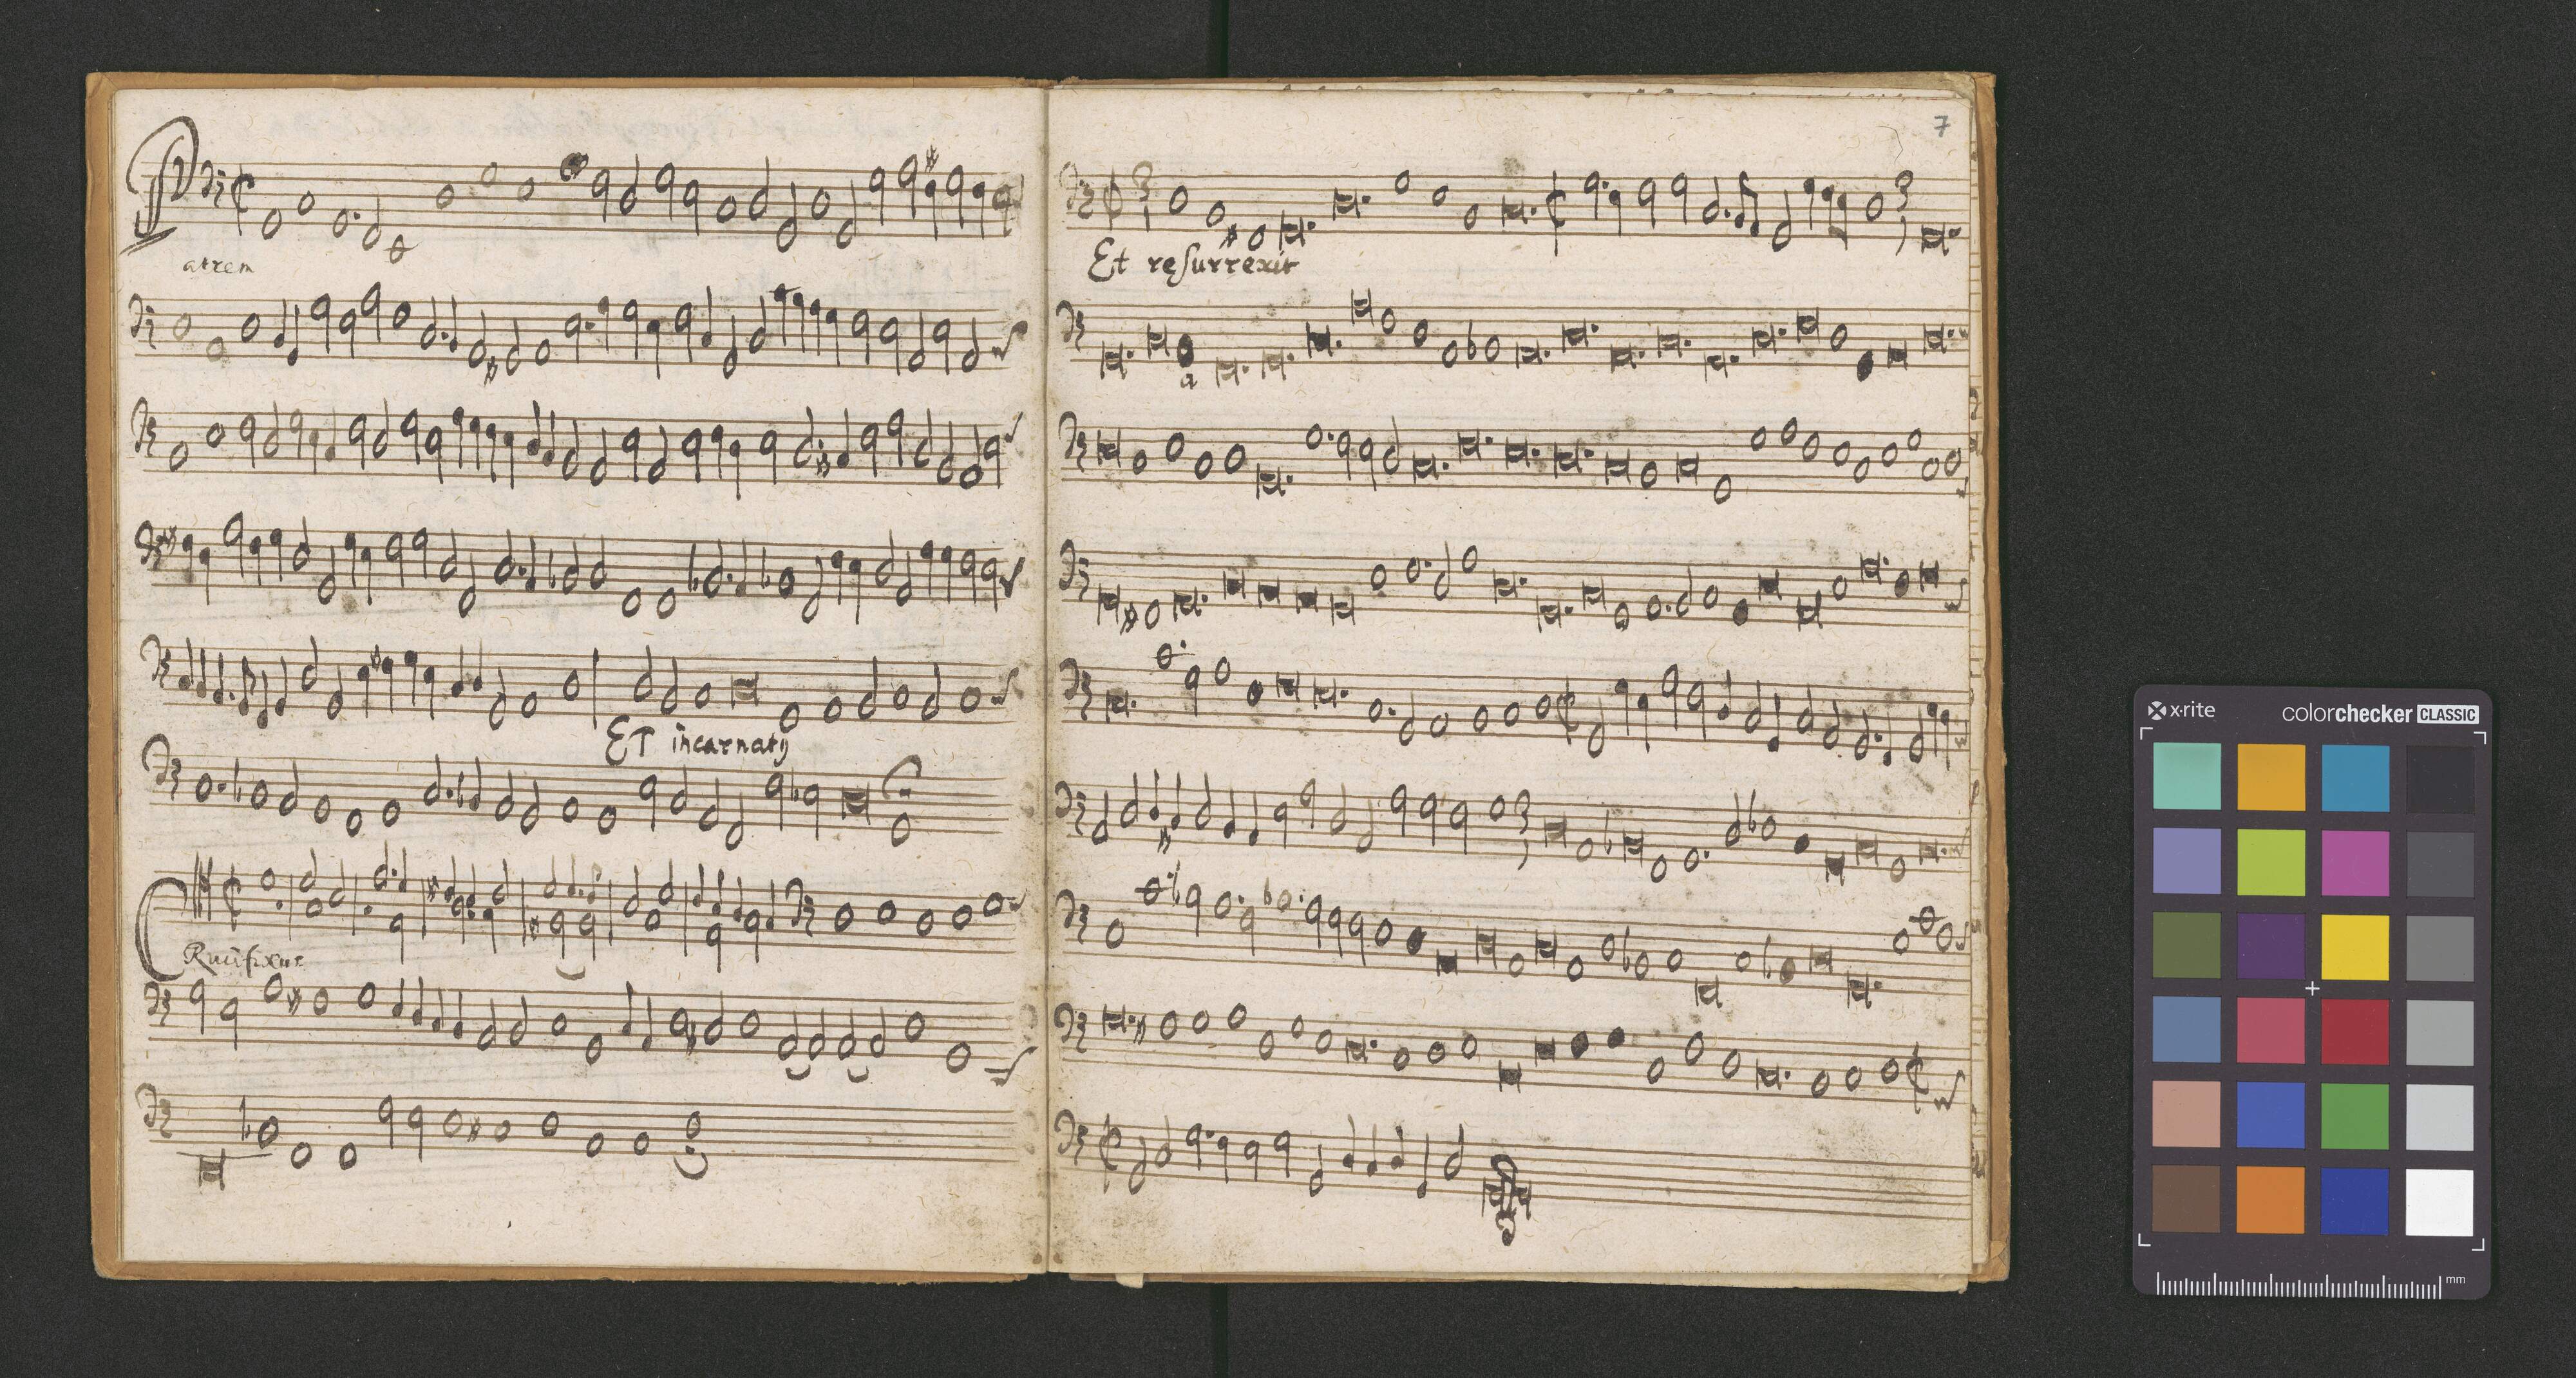 Patrem
ET incarnatȷ
CRucifixus
7
Et reſurrexit
a
x·rite
colorchecker CLASSIC
mm